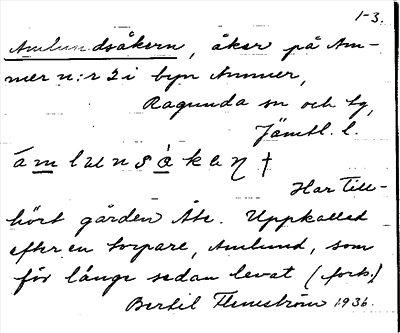 1-3.
Amlundsåkern, åker på Am-
mer n:r 2 i byn Ammer,
Ragunda sn och tg,
Jämtl. l.
ámlunsàkeɳ †
Har till-
hört gården Åte. Uppkallad
efter en torpare, Amlund, som
för länge sedan levat (fork.)
Bertil Flemström 1936.